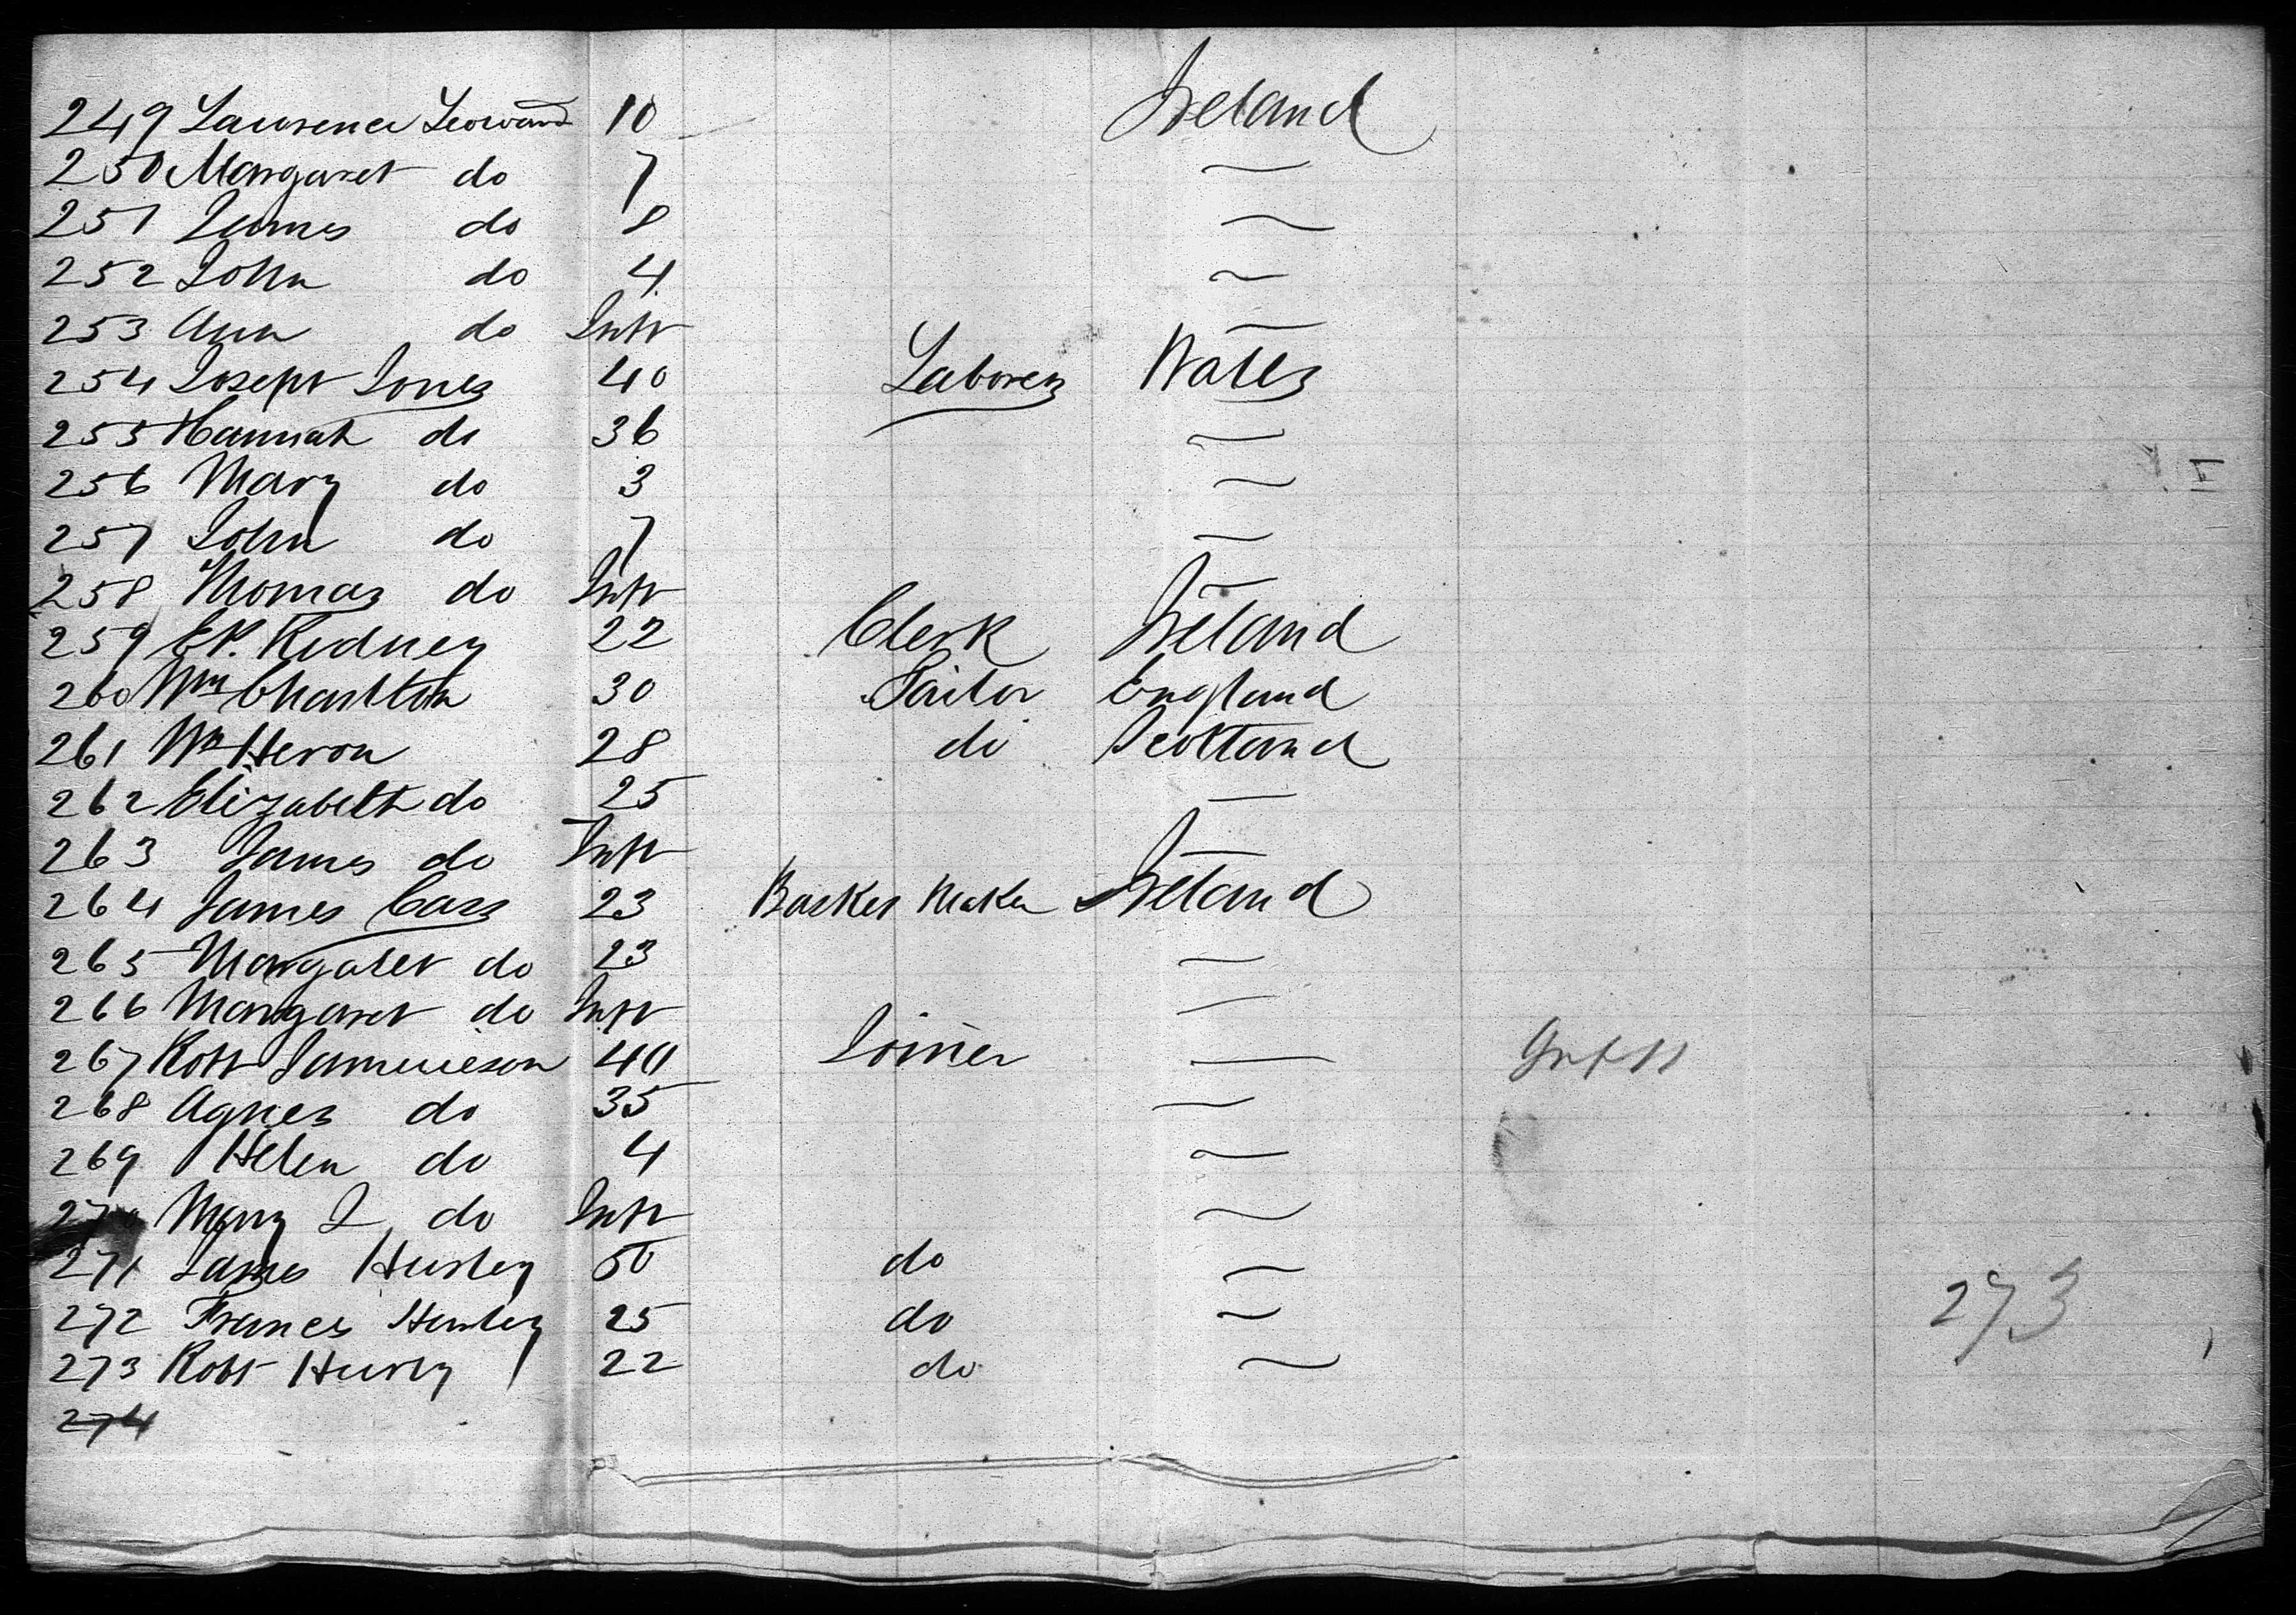 249 Laurence Leonard 10 Ireland
250 Margaret do 7 —
251 James do 8 —
252 John do 4 —
253 Ann do Inft —
254 Joseph Jones 40 Laborer Wales
255 Hannah do 36 —
256 Mary do 3 —
257 John do 7 —
258 Thomas do Inft —
259 Kidney 22 Clerk Ireland
260 Wm Charlton 30 Tailor England
261 Wm Heron 28 do Scotland
262 Elizabeth do 25 —
263 James do Inft —
264 James Cass 23 Basket Maker Ireland
265 Margaret do 23 —
266 Margaret do Inft —
267 Robt Jamieson 40 Joiner —
268 Agnes do 35 —
269 Helen do 4 —
270 Mary J do Inft —
271 James Hurley 50 do —
272 Frances Hurley 25 do — 273
273 Robt Hurly 22 do —
274